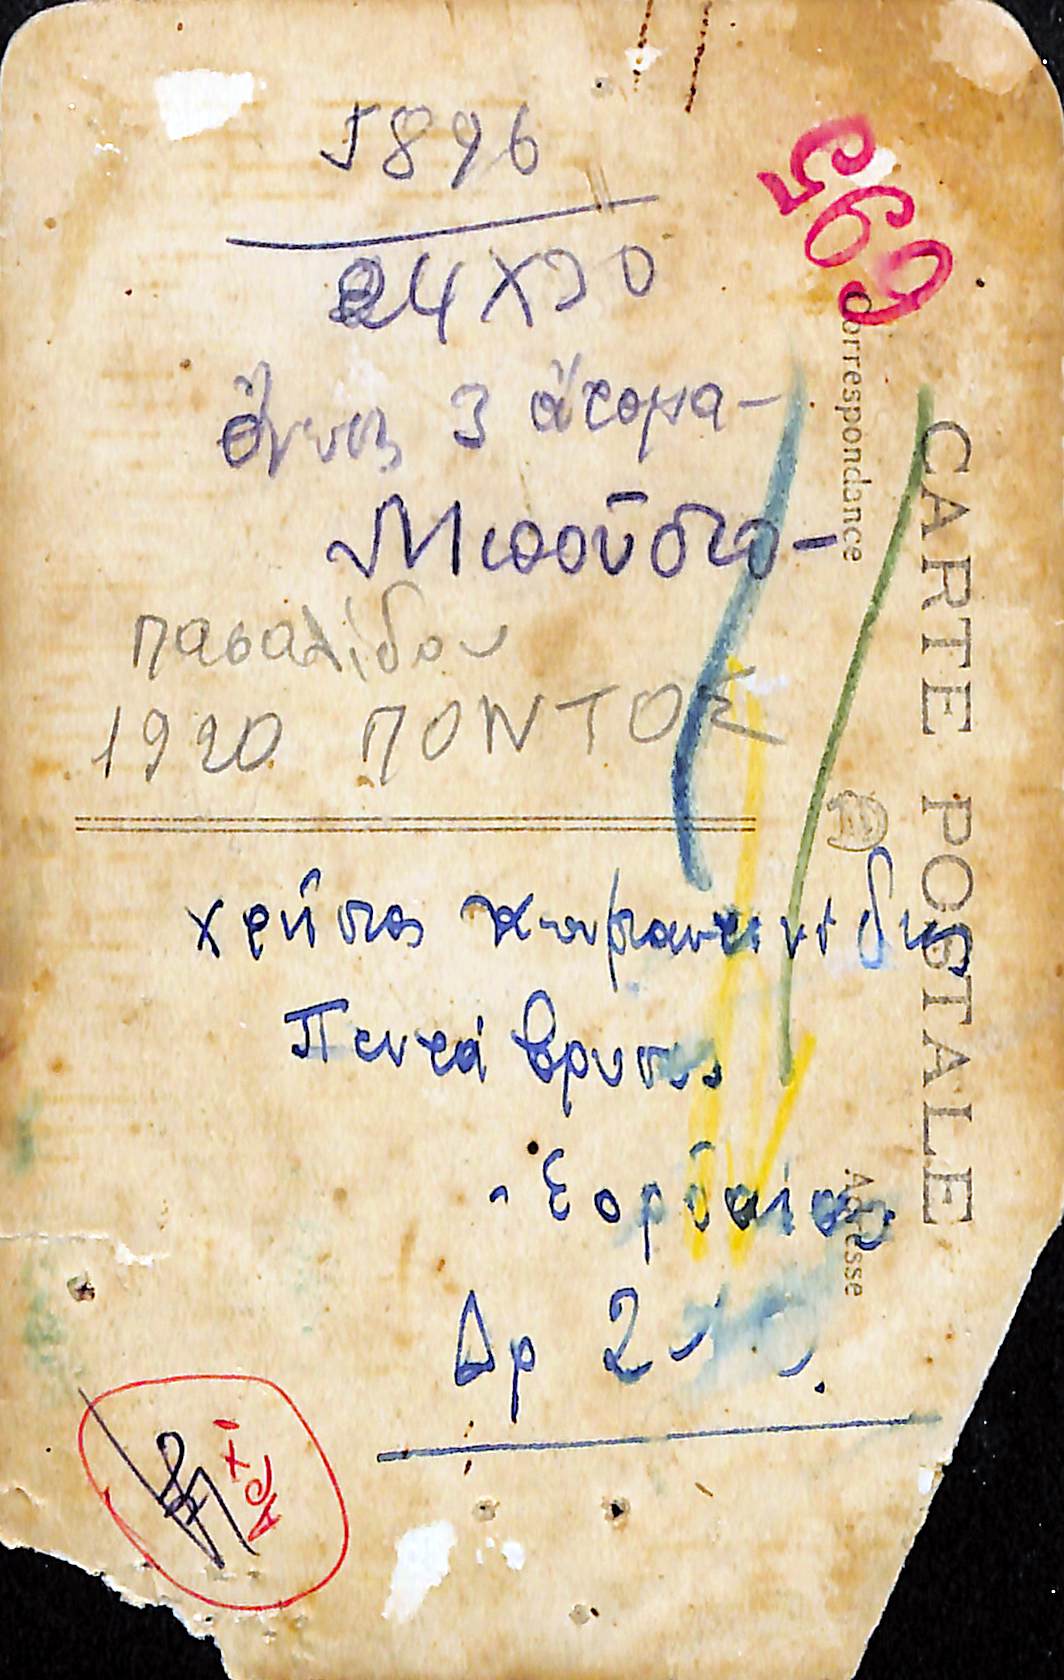 5896
24X30
3 ἄτομα-
Μπούστο-
πασαλίδου
1920 ΠΟΝΤΟΣ
Χρῆστος Κωνσταντινίδης
Πεντάβρυσος
- Εορδαίας
Δρ 2
569
Correspondance
CARTE POSTALE
Adresse